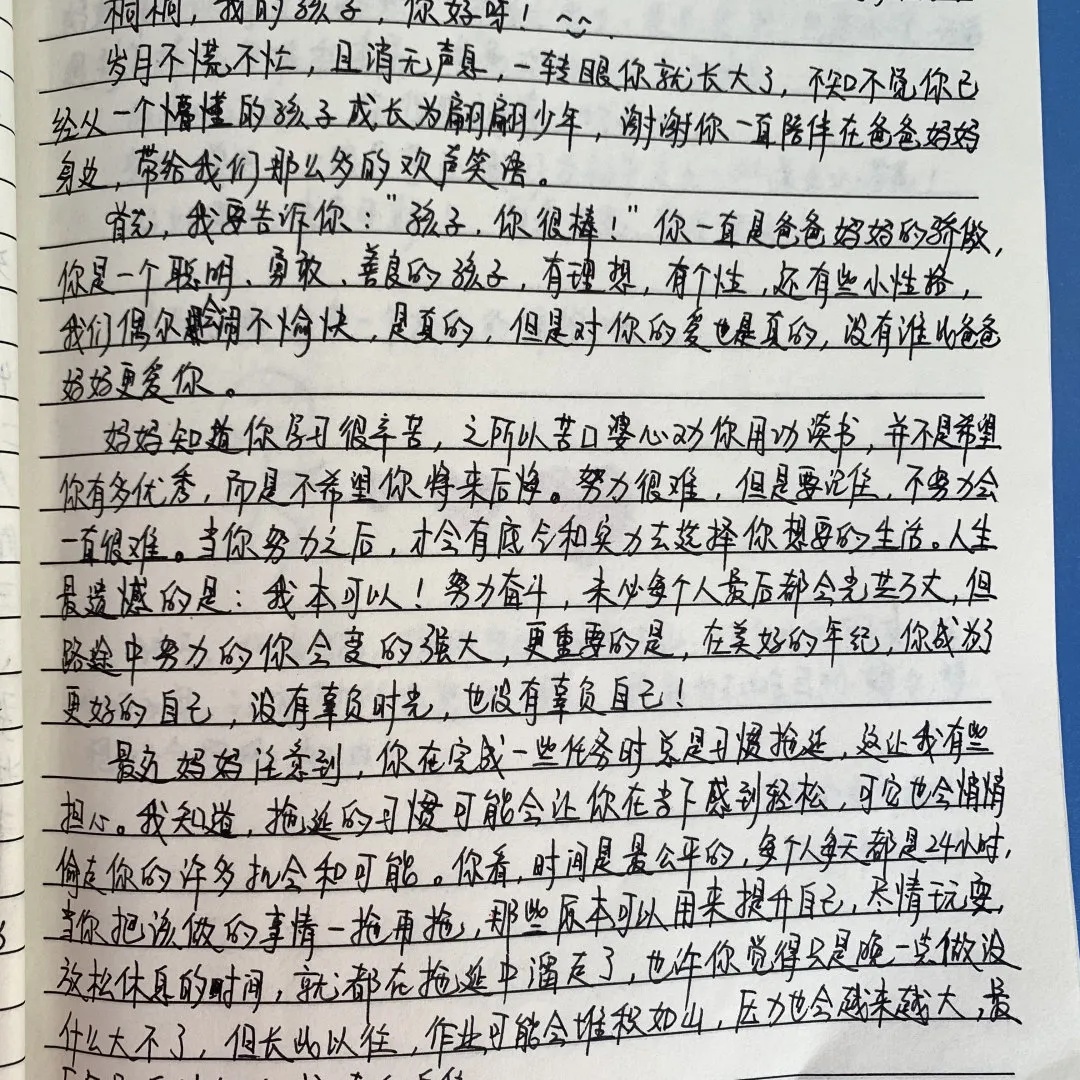 桐桐，我的孩子，你好呀！
岁月不慌不忙，且消无声息，一转眼你就长大了，不知不觉你已
经从一个懵懂的孩子成长为翩翩少年，谢谢你一直陪伴在爸爸妈妈
身边，带给我们那么多的欢声笑语。
首先，我要告诉你：“孩子，你很棒！”你一直是爸爸妈妈的骄傲，
你是一个聪明、勇敢、善良的孩子，有理想，有个性，还有些小性格，
我们偶尔会闹不愉快，是真的，但是对你的爱也是真的，没有谁比爸爸
妈妈更爱你。
妈妈知道你学习很辛苦，之所以苦口婆心劝你用功读书，并不是希望
你有多优秀，而是不希望你将来后悔。努力很难，但是要记住，不努力会
一直很难。当你努力之后，才会有底气和实力去选择你想要的生活。人生
最遗憾的是：我本可以！努力奋斗，未必每个人最后都会光芒万丈，但
路途中努力的你会变的强大，更重要的是，在美好的年纪，你成为了
更好的自己，没有辜负时光，也没有辜负自己！
最近妈妈注意到，你在完成一些任务时总是习惯拖延，这让我有些
担心。我知道，拖延的习惯可能会让你在当下感到轻松，可它也会悄悄
偷走你的许多机会和可能。你看，时间是最公平的，每个人每天都是24小时，
当你把该做的事情一拖再拖，那些原本可以用来提升自己，尽情玩耍，
放松休息的时间，就都在拖延中溜走了，也许你觉得只是晚一些做没
什么大不了，但长此以往，作业可能会堆积如山，压力也会越来越大，最